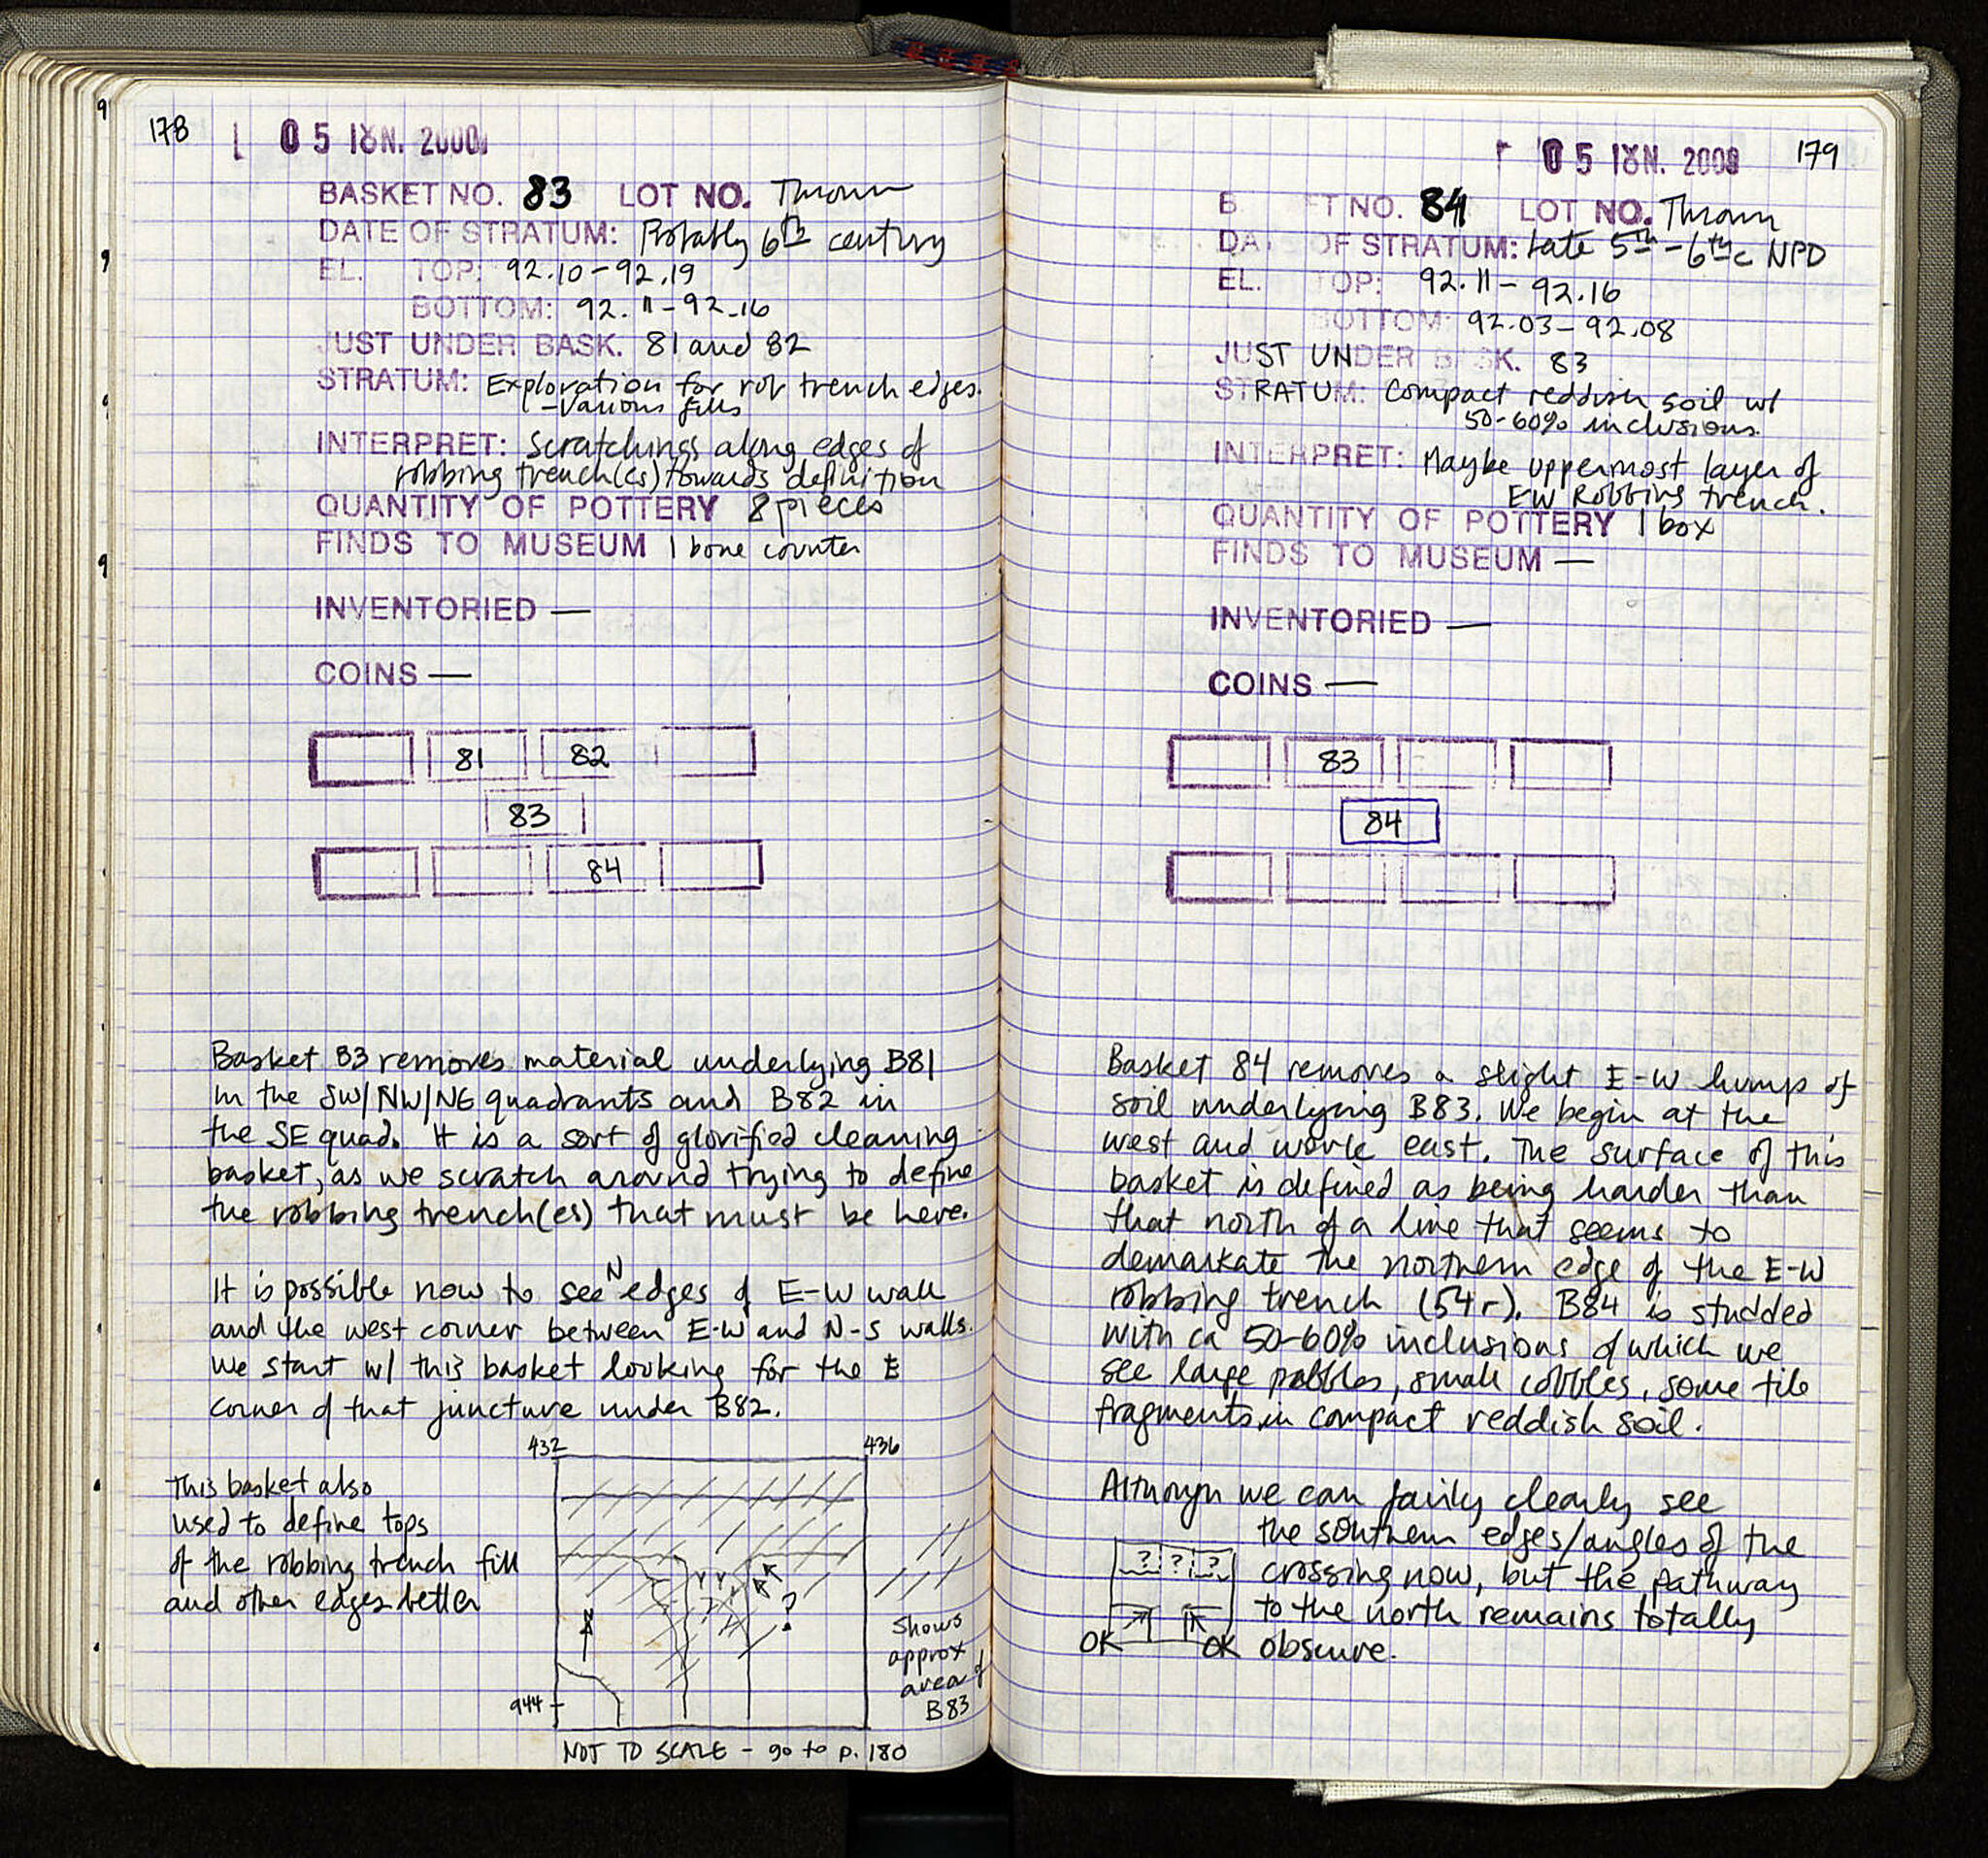 178
05 ΙΟΥΝ. 2000
BASKET NO. 83 LOT NO. Thrown
DATE OF STRATUM: Probably 6th century
EL. TOP: 92.10-92.19
BOTTOM: 92.11-92.16
JUST UNDER BASK. 81 and 82
STRATUM: Exploration for rob trench edges.
- various fills
INTERPRET: Scratchings along edges of
robbing trench(es) towards definition
QUANTITY OF POTTERY 8 pieces
FINDS TO MUSEUM 1 bone counter
INVENTORIED —
COINS —
81 82
83
84
Basket 83 removes material underlying B81
in the SW/NW/NE quadrants and B82 in
the SE quad. It is a sort of glorified cleaning
basket, as we scratch around trying to define
the robbing trench(es) that must be here.
It is possible now to see N edges of E-W wall
and the west corner between E-W and N-S walls.
We start w/ this basket looking for the E
corner of that juncture under B82.
432 436
This basket also
used to define tops
of the robbing trench fill
and other edges better
N
?
944
Shows
approx
area of
B83
NOT TO SCALE - go to p. 180
05 ΙΟΥΝ. 2000 179
B   ET NO. 84 LOT NO. Thrown
DATE OF STRATUM: Late 5th-6th c NPD
EL. TOP: 92.11-92.16
BOTTOM: 92.03-92.08
JUST UNDER BASK. 83
STRATUM: Compact reddish soil w/
50-60% inclusions.
INTERPRET: Maybe uppermost layer of
EW Robbing trench.
QUANTITY OF POTTERY 1 box
FINDS TO MUSEUM —
INVENTORIED —
COINS —
83
84
Basket 84 removes a slight E-W hump of
soil underlying B83. We begin at the
west and work east. The surface of this
basket is defined as being harder than
that north of a line that seems to
demarkate the northern edge of the E-W
robbing trench (54r). B84 is studded
with ca 50-60% inclusions of which we
see large pebbles, small cobbles, some tile
fragments, in compact reddish soil.
Although we can fairly clearly see
the southern edges/angles of the
crossing now, but the pathway
to the north remains totally
obscure.
? ? ?
OK OK